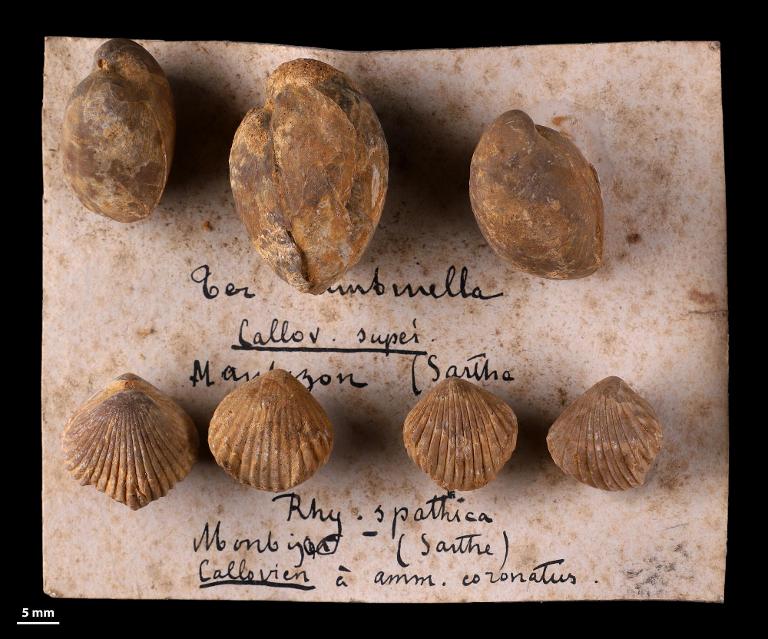 Ter umbonella
Callov. supér.
(Sarthe
Rhy. spathica
(Sarthe)
Callovien à amm. coronatus.
5 mm